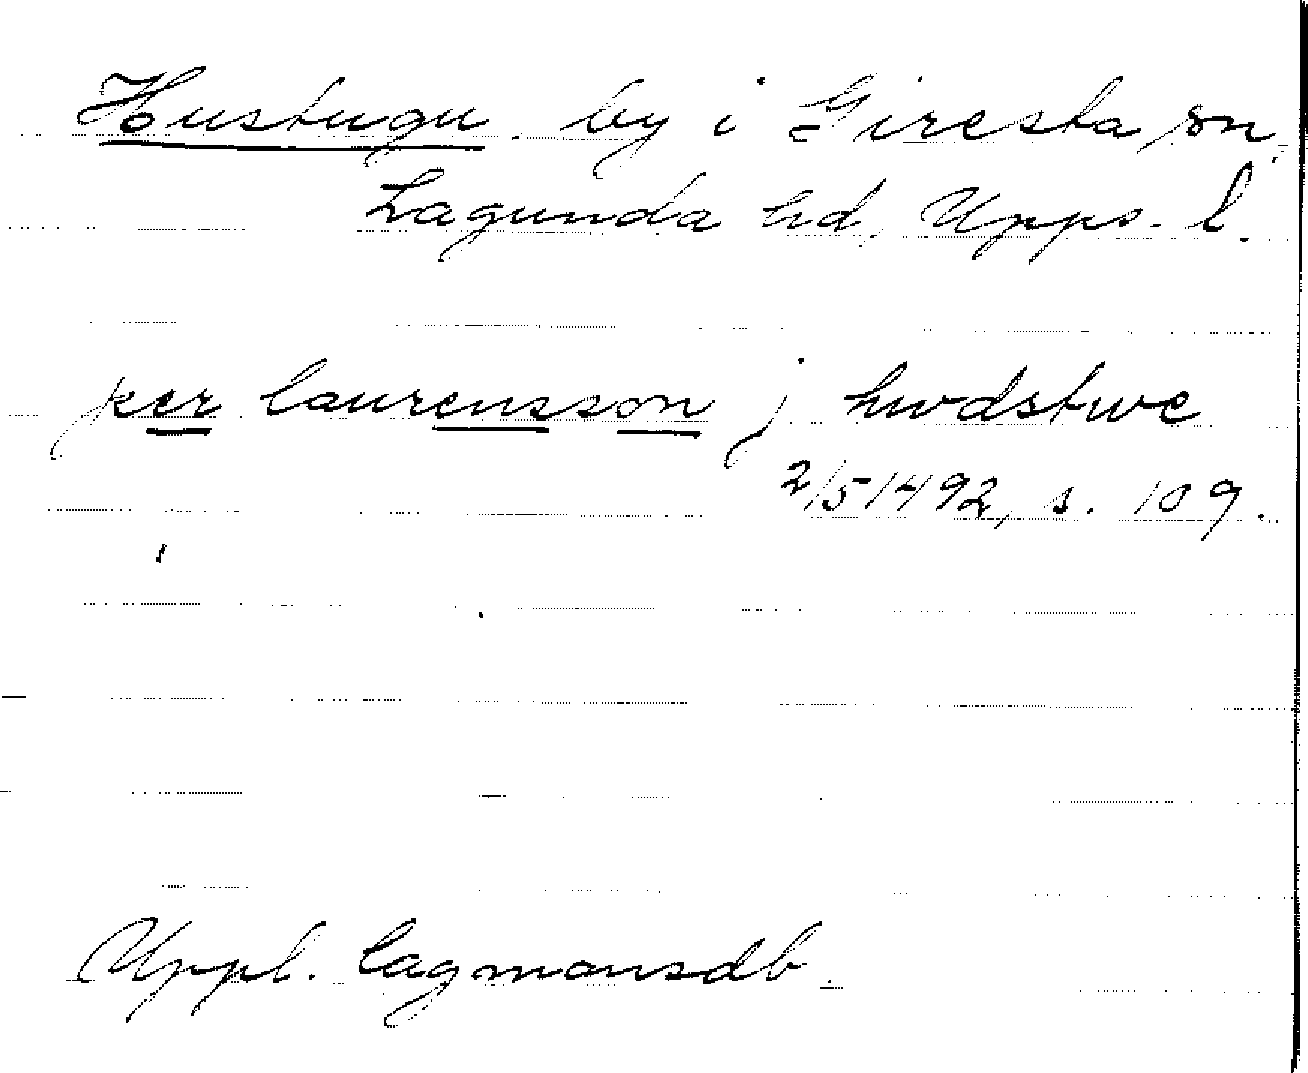 Hustugu. by i Giresta sn,
Lagunda hd, Upps. l.
per laurensson j hwdstwe
2/5 1492, s. 109.
Uppl. lagmansdb.